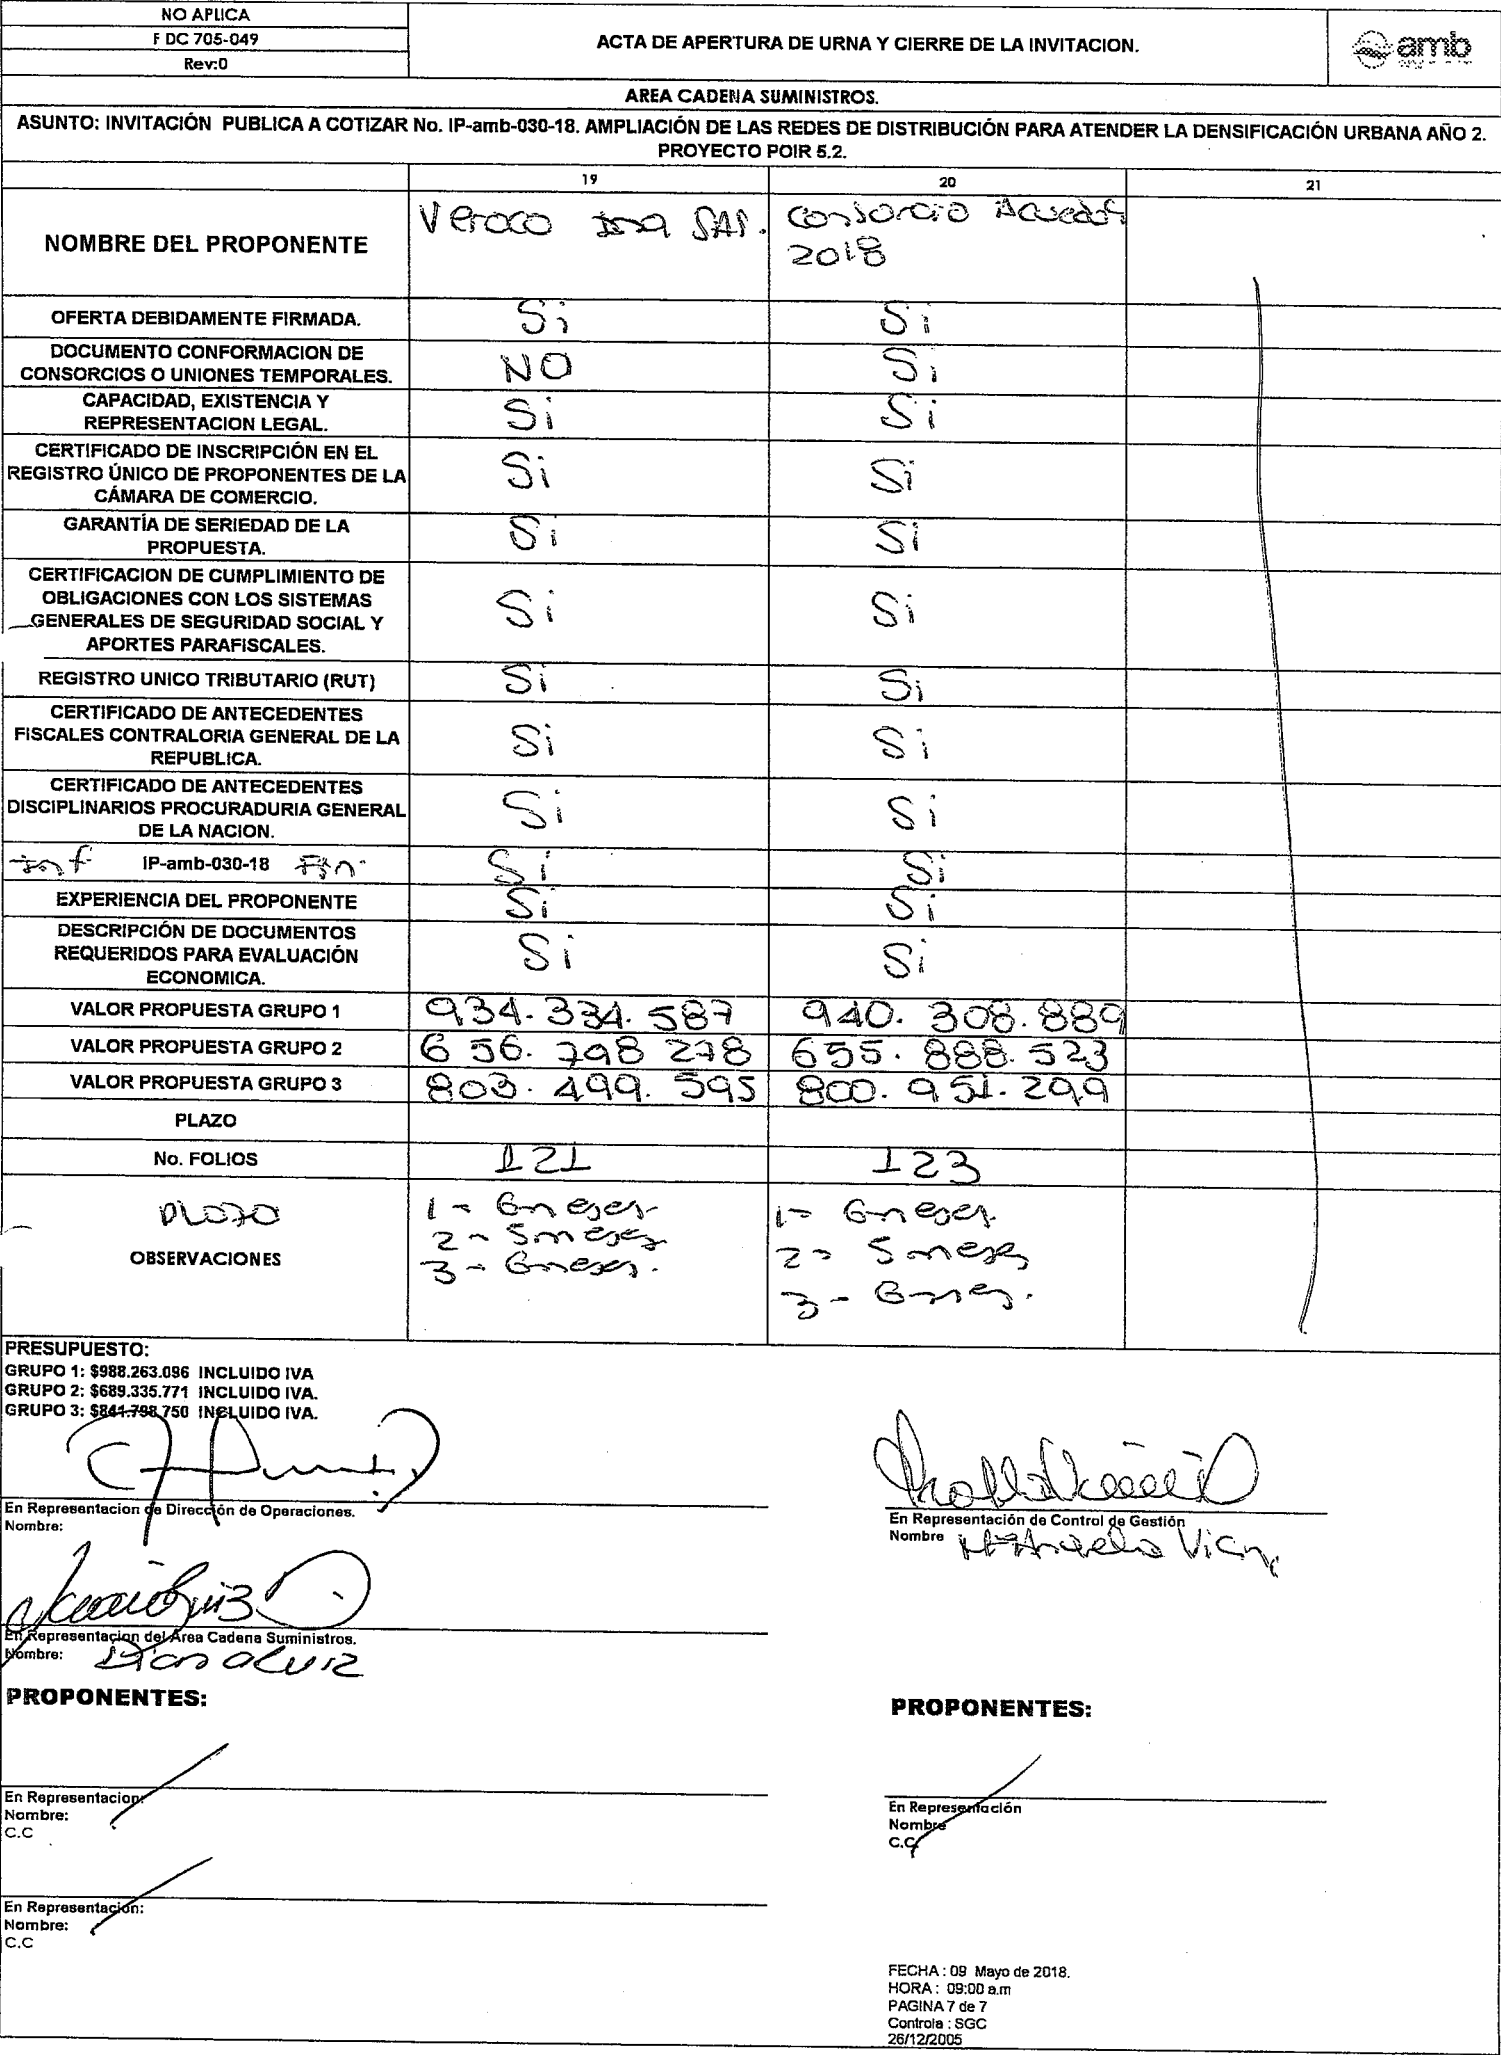 NO APLICA
F DC 705-049
Rev:0
ACTA DE APERTURA DE URNA Y CIERRE DE LA INVITACION.
amb
AREA CADENA SUMINISTROS.
ASUNTO: INVITACIÓN PUBLICA A COTIZAR No. IP-amb-030-18. AMPLIACIÓN DE LAS REDES DE DISTRIBUCIÓN PARA ATENDER LA DENSIFICACIÓN URBANA AÑO 2.
PROYECTO POIR 5.2.
19 20 21
NOMBRE DEL PROPONENTE
Veroco SAS.
Consorcio
2018
OFERTA DEBIDAMENTE FIRMADA. Si Si
DOCUMENTO CONFORMACION DE
CONSORCIOS O UNIONES TEMPORALES. NO Si
CAPACIDAD, EXISTENCIA Y
REPRESENTACION LEGAL. Si Si
CERTIFICADO DE INSCRIPCIÓN EN EL
REGISTRO ÚNICO DE PROPONENTES DE LA
CÁMARA DE COMERCIO. Si Si
GARANTÍA DE SERIEDAD DE LA
PROPUESTA. Si Si
CERTIFICACION DE CUMPLIMIENTO DE
OBLIGACIONES CON LOS SISTEMAS
GENERALES DE SEGURIDAD SOCIAL Y
APORTES PARAFISCALES. Si Si
REGISTRO UNICO TRIBUTARIO (RUT) Si Si
CERTIFICADO DE ANTECEDENTES
FISCALES CONTRALORIA GENERAL DE LA
REPUBLICA. Si Si
CERTIFICADO DE ANTECEDENTES
DISCIPLINARIOS PROCURADURIA GENERAL
DE LA NACION. Si Si
Inf IP-amb-030-18 Fin. Si Si
EXPERIENCIA DEL PROPONENTE Si Si
DESCRIPCIÓN DE DOCUMENTOS
REQUERIDOS PARA EVALUACIÓN
ECONOMICA. Si Si
VALOR PROPUESTA GRUPO 1 934.334.587 940.308.889
VALOR PROPUESTA GRUPO 2 656.798 278 655.888.523
VALOR PROPUESTA GRUPO 3 803.499.595 800.951.299
PLAZO
No. FOLIOS 121 123
Plazo
OBSERVACIONES
1 - 6 meses.
2 - 5 meses
3 - 6 meses.
1 - 6 meses.
2 - 5 meses
3 - 6 meses.
PRESUPUESTO:
GRUPO 1: $988.263.096 INCLUIDO IVA
GRUPO 2: $689.335.771 INCLUIDO IVA.
GRUPO 3: $841.798.750 INCLUIDO IVA.
En Representacion de Dirección de Operaciones.
Nombre:
En Representación de Control de Gestión
Nombre
En Representacion del Area Cadena Suministros.
Nombre:
PROPONENTES:
PROPONENTES:
En Representacion:
Nombre:
C.C
En Representación
Nombre
C.C.
En Representación:
Nombre:
C.C
FECHA : 09 Mayo de 2018.
HORA : 09:00 a.m
PAGINA 7 de 7
Controla : SGC
26/12/2005